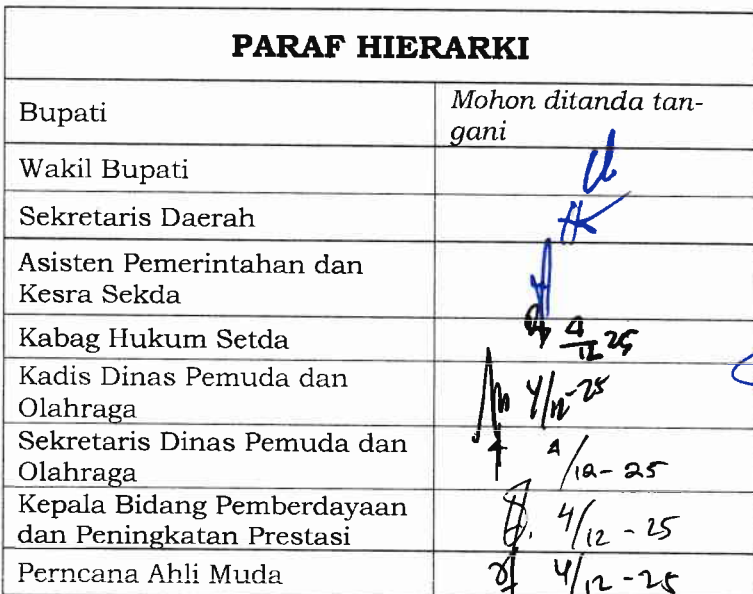 PARAF HIERARKI
Bupati
Mohon ditanda tan-
gani
Wakil Bupati
Sekretaris Daerah
Asisten Pemerintahan dan
Kesra Sekda
Kabag Hukum Setda
4/12 25
Kadis Dinas Pemuda dan
Olahraga
4/12-25
Sekretaris Dinas Pemuda dan
Olahraga
4/12-25
Kepala Bidang Pemberdayaan
dan Peningkatan Prestasi
4/12-25
Perncana Ahli Muda
4/12-25